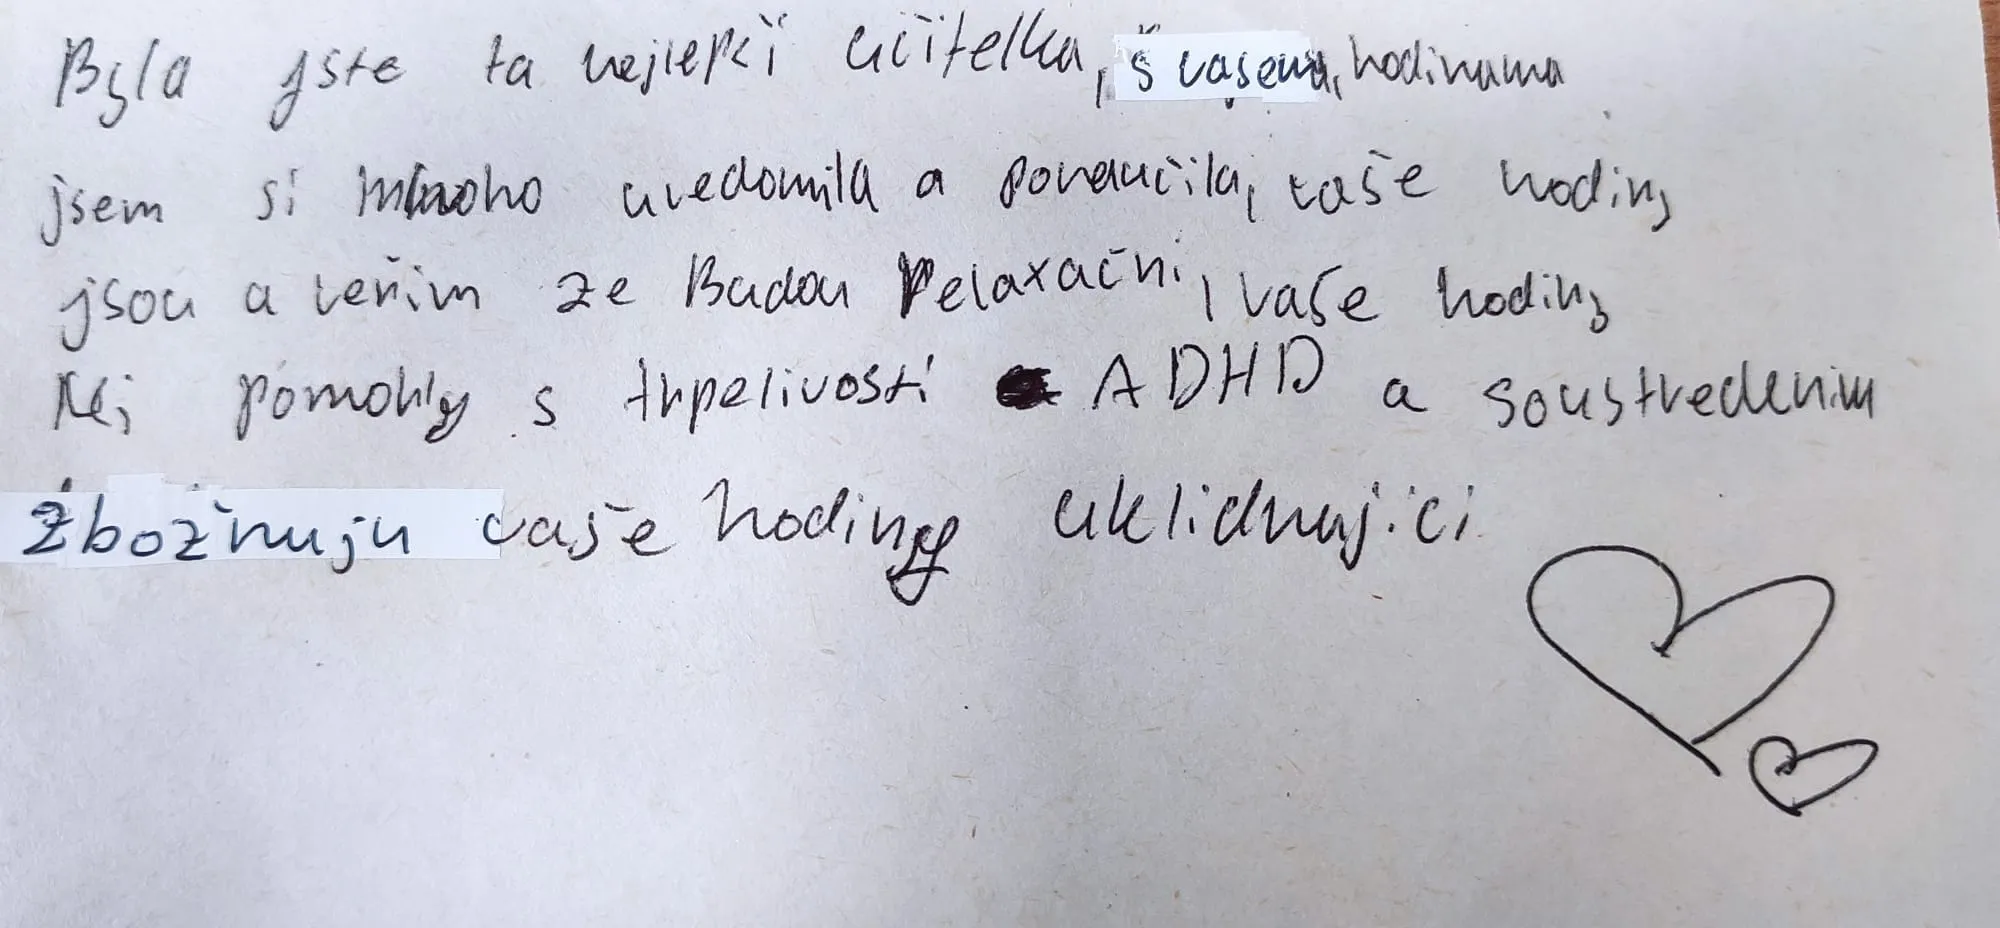 Byla jste ta nejlepší učitelka, s vašema, hodinama
jsem si mnoho uvedomila a ponaučila, vaše hodiny
jsou a veřim ze Budou Relaxační, vaše hodiny
Mi pomohly s trpelivosti ADHD a soustredenim
Zbožnuju vaše hodiny uklidnujici